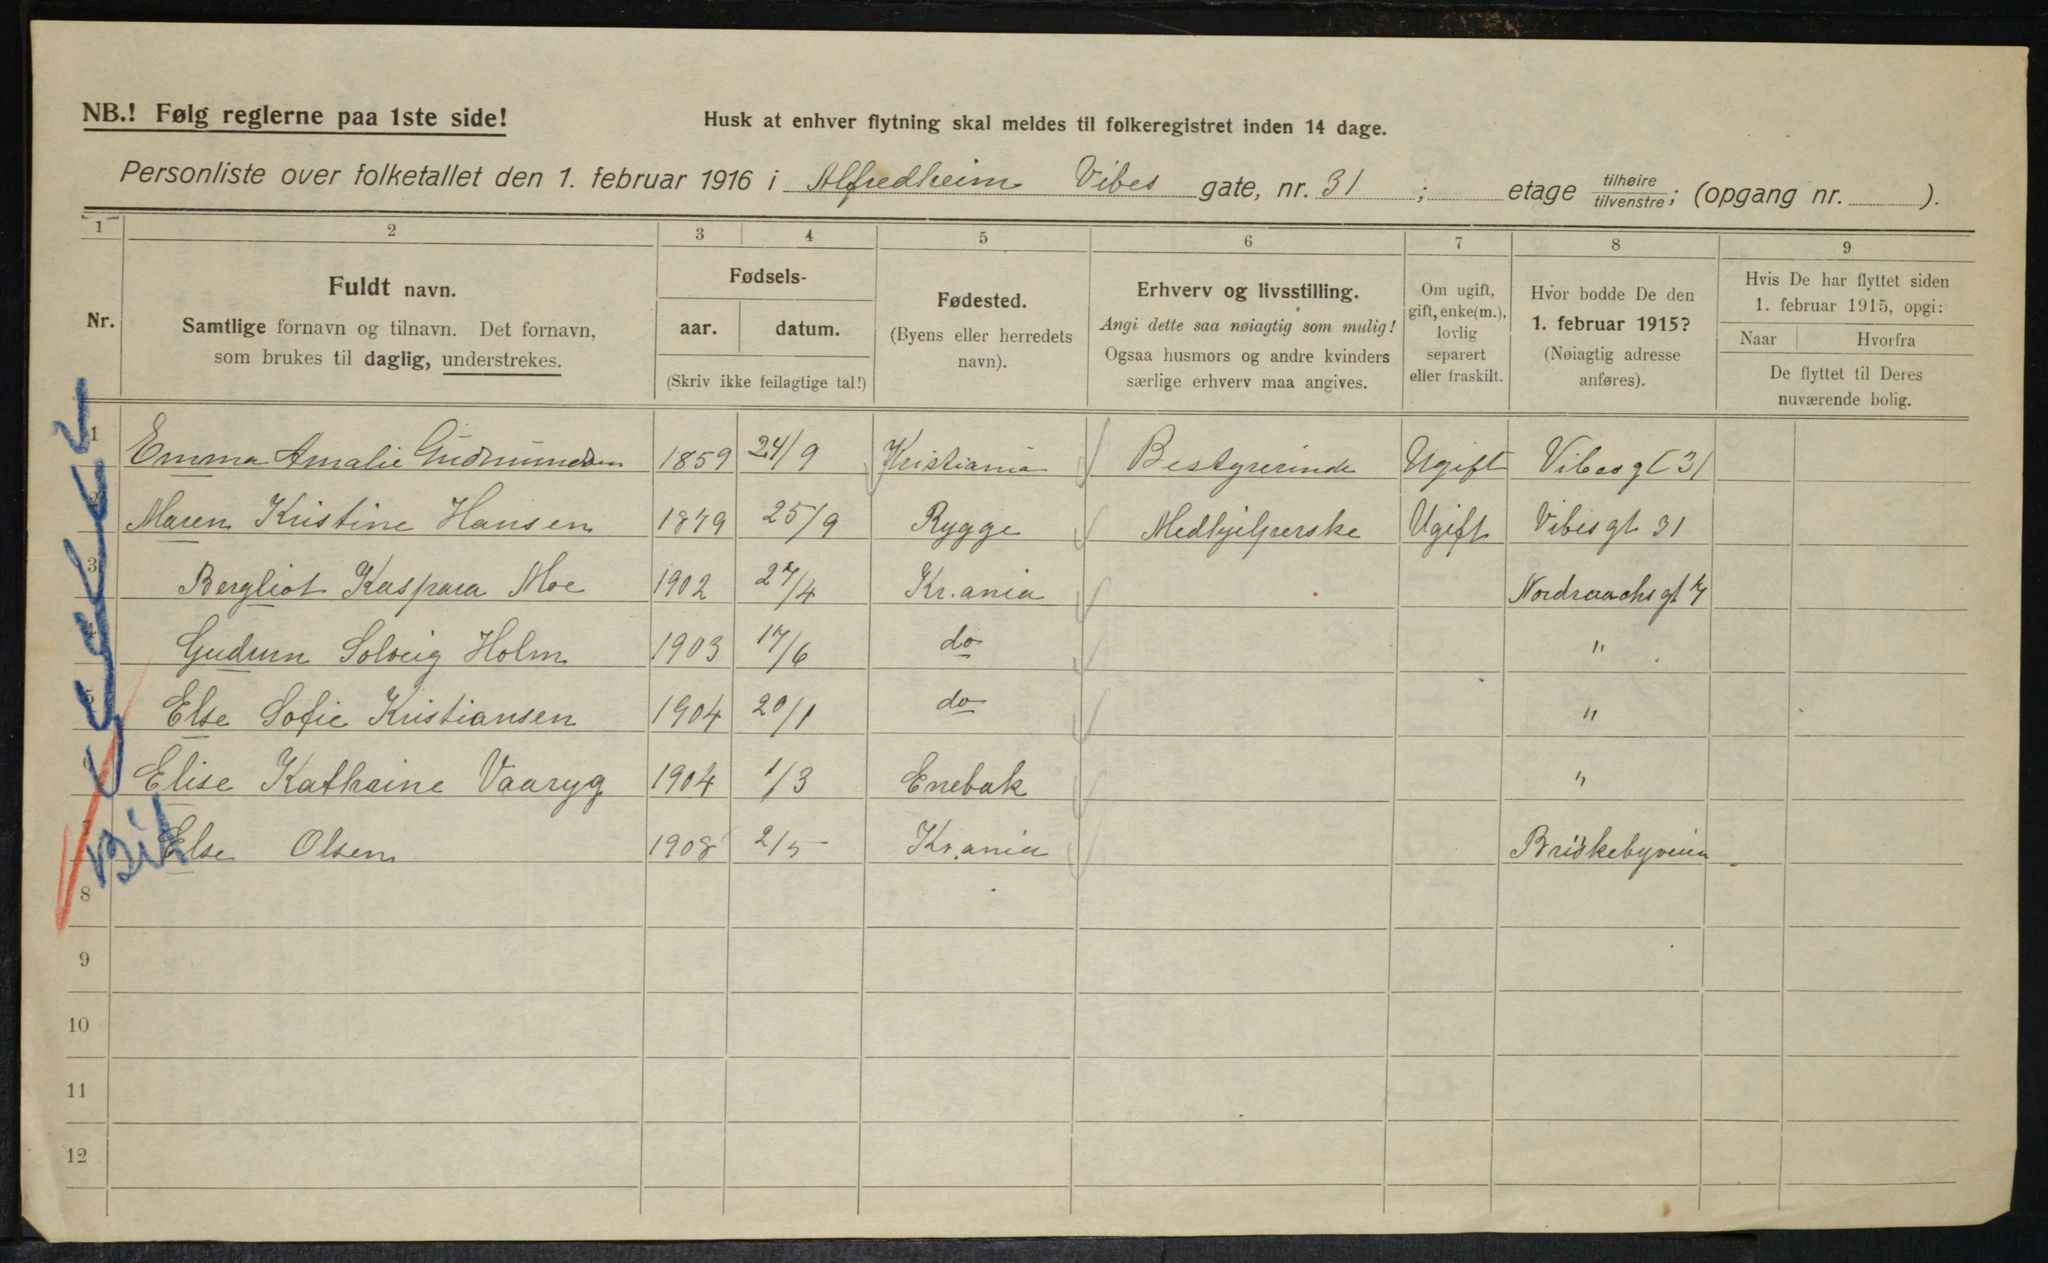 NB.! Følg reglerne paa 1ste side!
Husk at enhver flytning skal meldes til folkeregistret inden 14 dage.
Personliste over folketallet den 1. februar 1916 i Alfredheim Vibes gate, nr. 31 ; etage tilhøire tilvenstre; (opgang nr. ).
1 2 3 4 5 6 7 8 9
Nr.
Fuldt navn.
Samtlige fornavn og tilnavn. Det fornavn,
som brukes til daglig, understrekes.
Fødsels-
aar. datum.
(Skriv ikke feilagtige tal!)
Fødested.
(Byens eller herredets
navn).
Erhverv og livsstilling.
Angi dette saa nøiagtig som mulig!
Ogsaa husmors og andre kvinders
særlige erhverv maa angives.
Om ugift,
gift, enke(m.),
lovlig
separert
eller fraskilt.
Hvor bodde De den
1. februar 1915?
(Nøiagtig adresse
anføres).
Hvis De har flyttet siden
1. februar 1915, opgi:
Naar Hvorfra
De flyttet til Deres
nuværende bolig.
1 Emma Amalie Gudmundsen 1859 24/9 Kristiania Bestyrerinde Ugift Vibesgt 31
2 Maren Kristine Hansen 1879 25/9 Rygge Medhjelperske Ugift Vibesgt 31
3 Bergliot Kaspara Moe 1902 27/4 Kr.ania Nordraachsgt 7
4 Gudrun Solveig Holm 1903 17/6 do "
5 Else Sofie Kristiansen 1904 20/1 do "
6 Elise Kathrine Vaaryg 1904 1/3 Enebak "
7 Else Olsen 1908 2/5 Kr.ania Briskebyveien
8
9
10
11
12